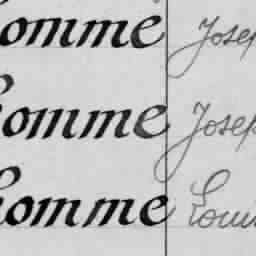 omme Josep
omme Josep
homme Loui